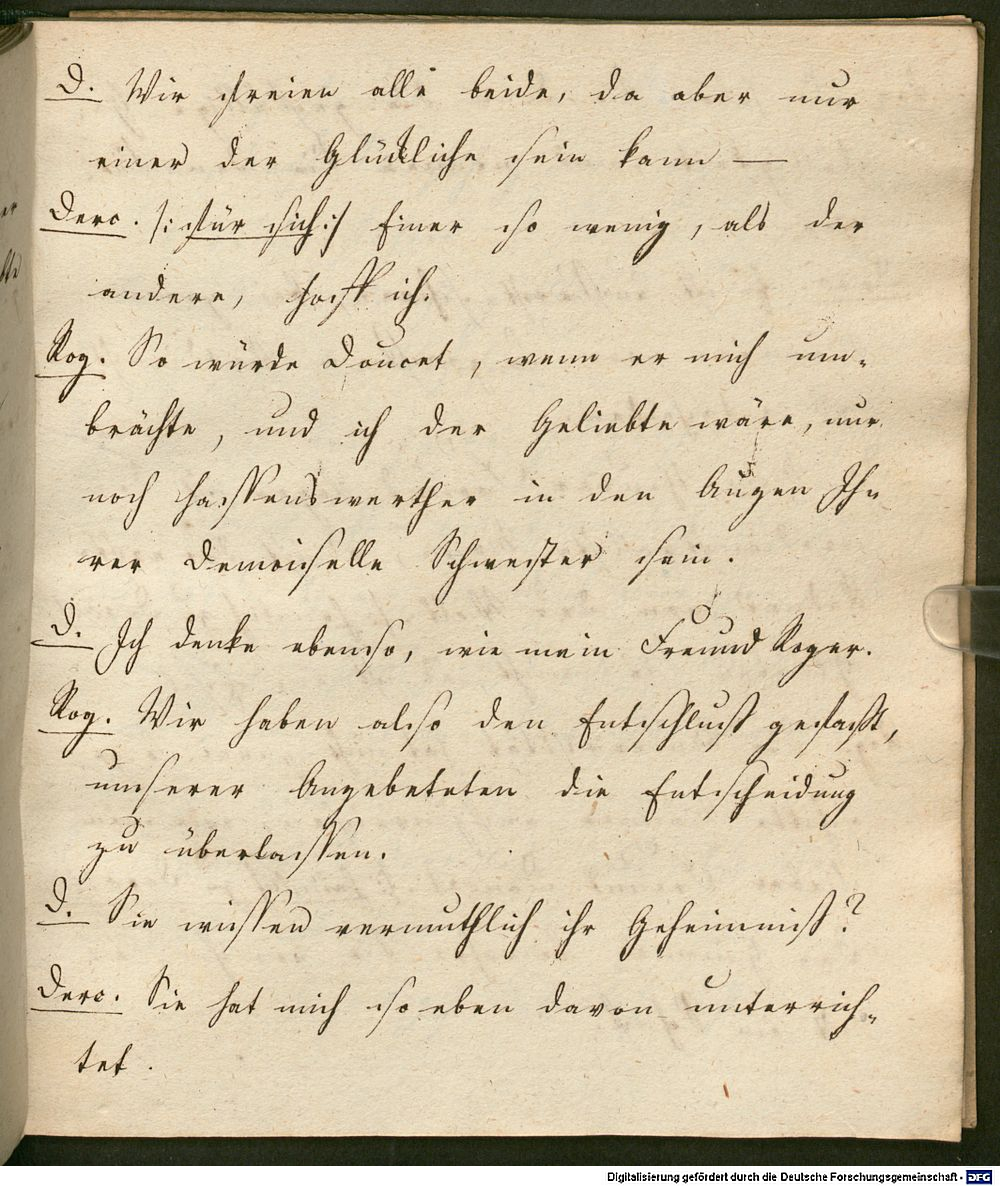 D. Wir freien alle beide, da aber nur
einer der Glückliche sein kann —
Derc. /: für sich :/ Einer so wenig, als der
andere, hoff ich.
Rog. So würde Doucet, wenn er mich um-
brächte, und ich der Geliebte wäre, nur
noch hassenswerther in den Augen Ih-
rer Demoiselle Schwester sein.
D. Ich denke ebenso, wie mein Freund Roger.
Rog. Wir haben also den Entschluß gefaßt,
unserer Angebeteten die Entscheidung
zu überlassen.
D. Sie wissen vermuthlich ihr Geheimniß?
Derc. Sie hat mich so eben davon unterrich-
tet.
Digitalisierung gefördert durch die Deutsche Forschungsgemeinschaft - DFG